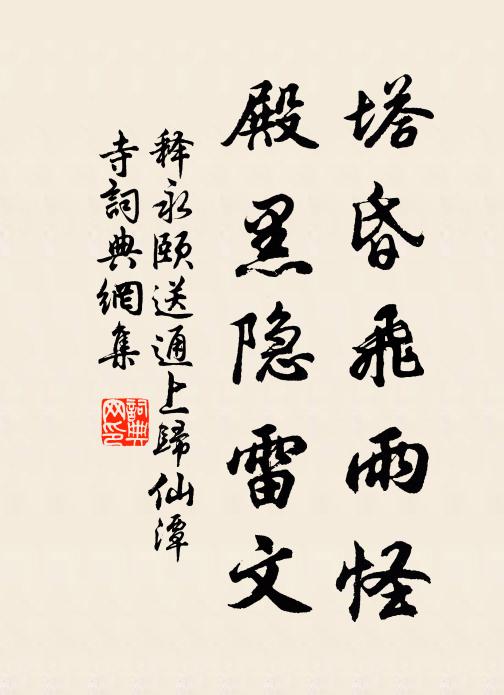 塔昏飛雨怪
殿黑隐雷文
释永頤送通上歸仙潭
寺詞典網集
詞典
网印